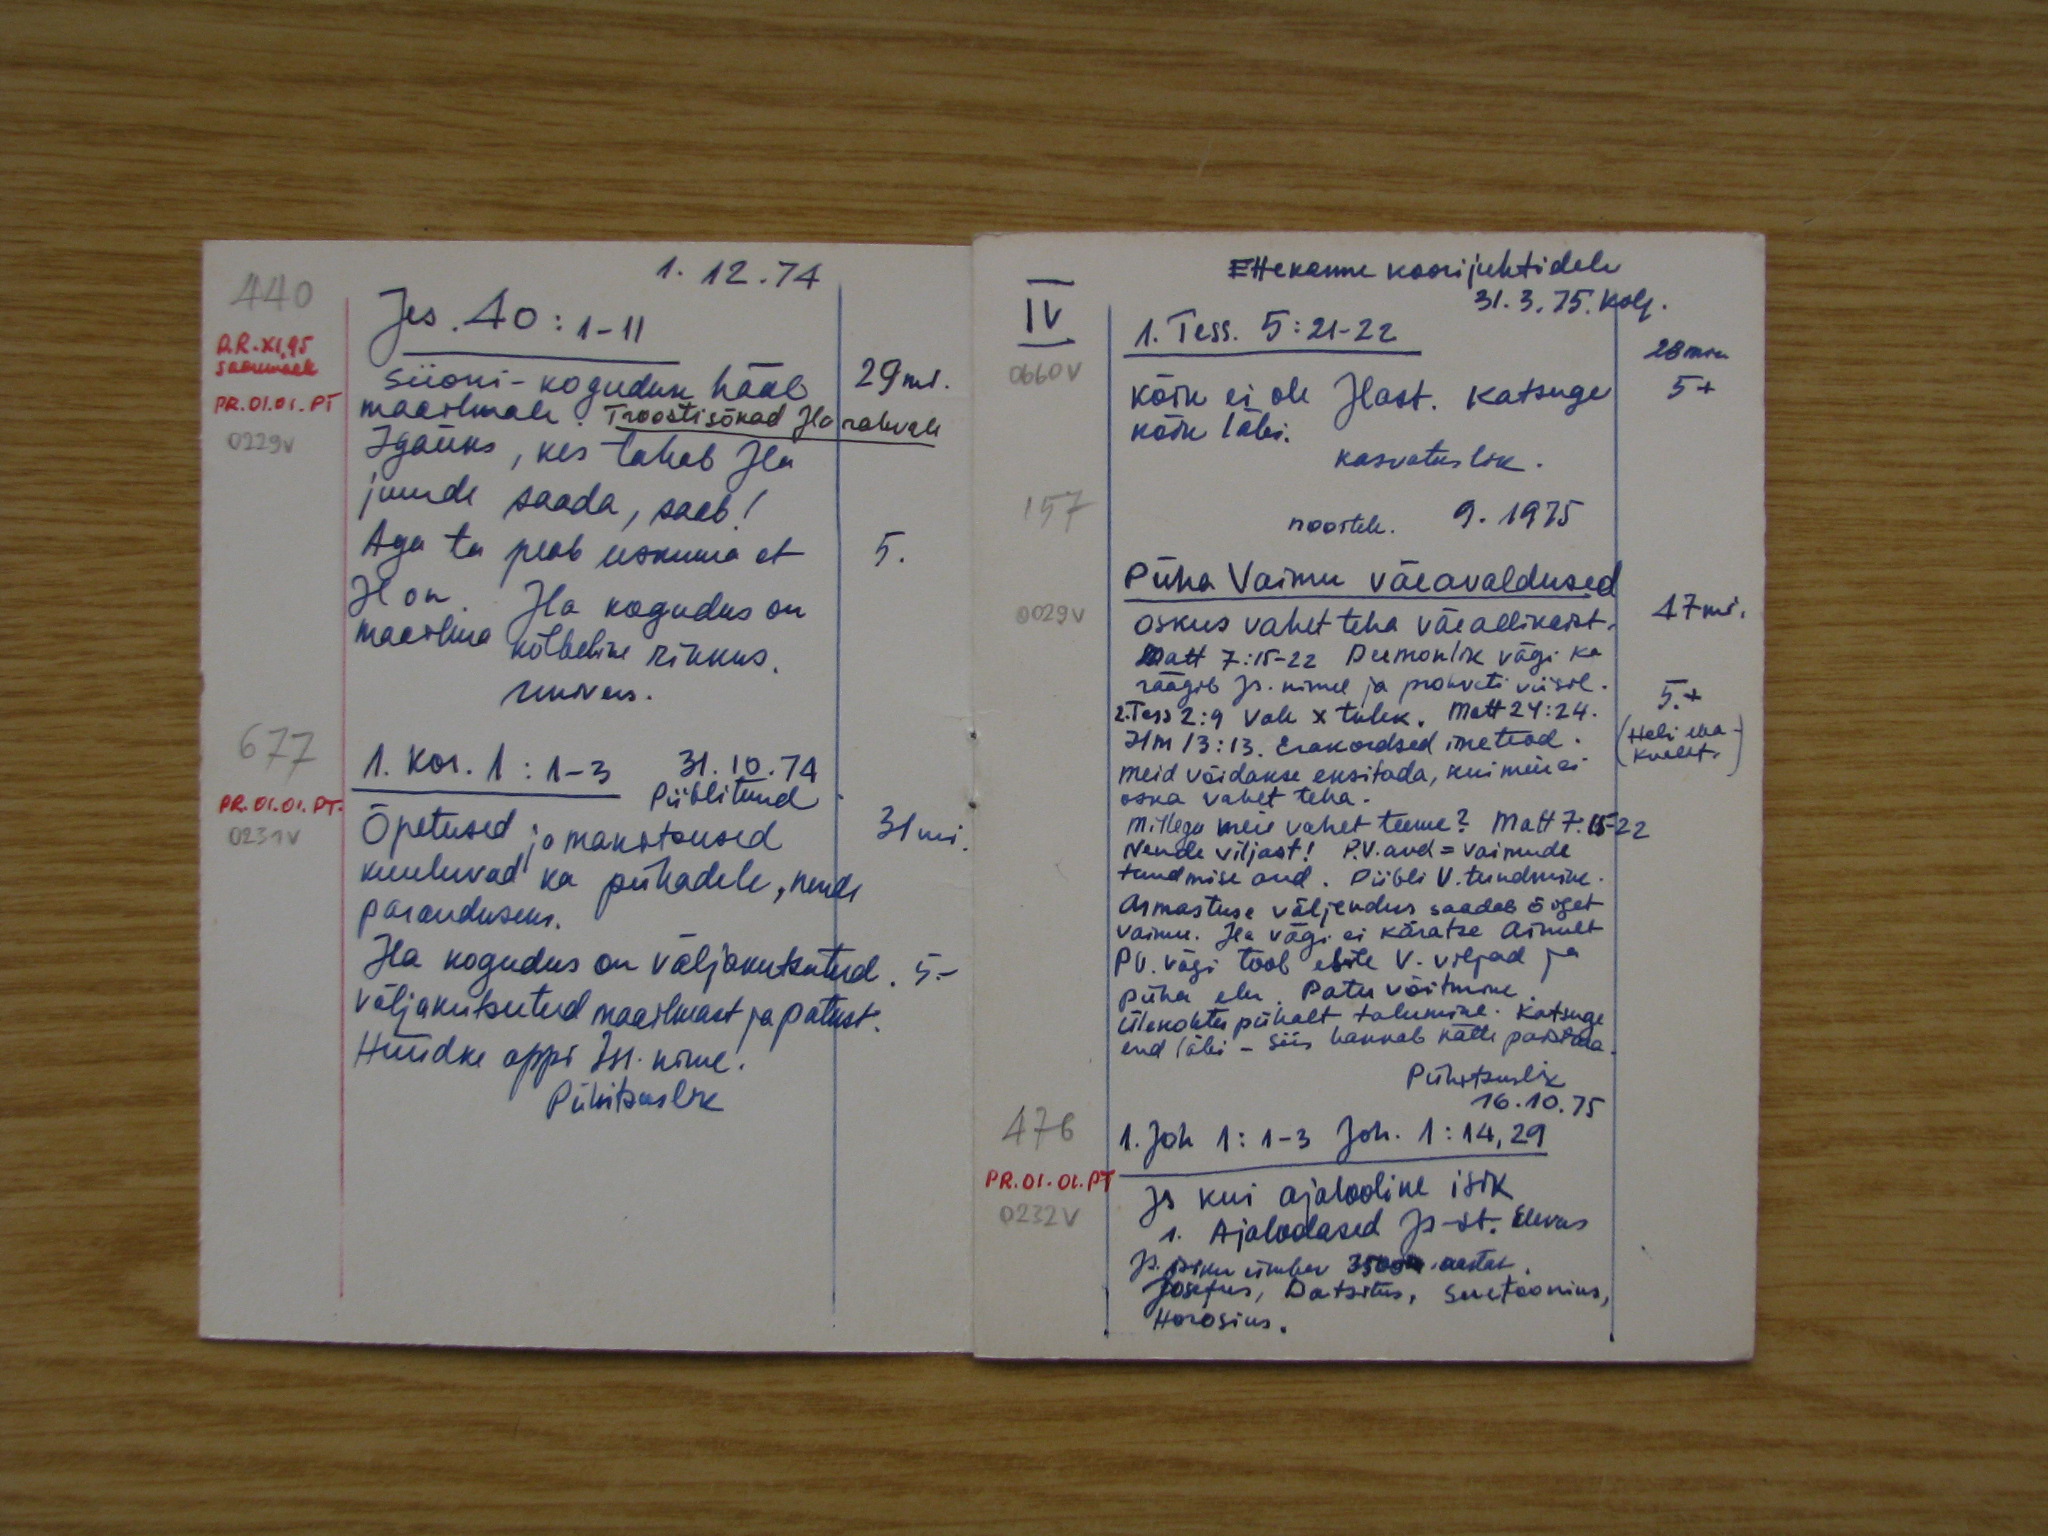 1. 12.74
440
Jes. 40: 1-11
R.R. XI,95
saarmaale
PR.01.01.PT
0229V
Siioni-koguduse hääl 29 mi.
maailmale. Troostisõnad Jla rahvale
Igaüks, kes tahab Jla
juurde saada, saab!
Aga ta peab uskuma et 5.
Jl on. Jla kogudus on
maailma kõlbeline rikkus.
univers.
677
1. Kor. 1: 1-3 31.10.74
Piiblitund
PR.01.01.PT.
0231V
Õpetused ja manitsused 31 mi.
kuuluvad ka pühadele, nende
paranduseks.
Jla kogudus on väljakutsutud. 5-
väljakutsutud maailmast ja patust.
Hüüdke appi Iss. nime!
Pühitsuslik
Ettekanne koorijuhtidele
31.3.75. Kolg.
IV
1. Tess. 5:21-22
28 min
0660V
kõik ei ole Jlast. Katsuge 5+
kõik läbi.
kasvatuslik.
157
noortele. 9.1975
Püha Vaimu väeavaldused
0029V
oskus vahet teha väeallikaist. 47 mi.
Matt 7:15-22 Deemonlik vägi ka
räägib Js. nimel ja prohveti viisil. 5.+
2.Tess 2:9 Vale x tulek. Matt 24:24.
Ilm 13:13. Erakordsed imeteod. (Heli eba-
kvalit.)
meid võidakse eksitada, kui me ei
oska vahet teha.
Millega meie vahet teeme? Matt 7:15-22
Nende viljast! P.V. and = vaimude
tundmise and. Piibli V. tundmine.
Armastuse väljendus saadab õiget
vaimu. Jla vägi ei käratse Ainult
PV. vägi toob esile V. viljad ja
püha elu. Patu võitmine.
Ülekohtu pühalt talumine. Katsuge
end läbi - siis hakkab kätte paistma.
Pühitsuslik
16.10.75
476
1. Joh 1: 1-3 Joh. 1: 14, 29
PR.01.01.PT
0232V
Js kui ajalooline isik
1. Ajaloolased Js-st. Elevus
Js. isiku ümber aastat.
Josefus, Datsitus, Suetoonius,
Horosius.